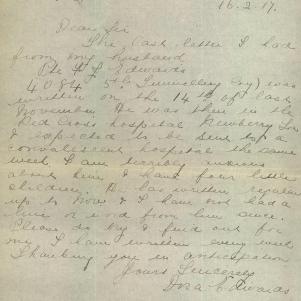 16.2.17.
Dear Sir
The last letter I had
from my husband
Pte H J Edwards
4084 5th Tunnelling Coy) was
written on the 14th of last
November He was then in the
Red Cross hospital
& expected to be sent to a
convalescent hospital the same
week I am terribly anxious
about him I have four little
children. He has written regular
up to now & I have not had a
line or word from him since.
Please do try & find out for
me, I have written every week
Thanking you in anticipation
Yours Sincerely
Dora Edwards